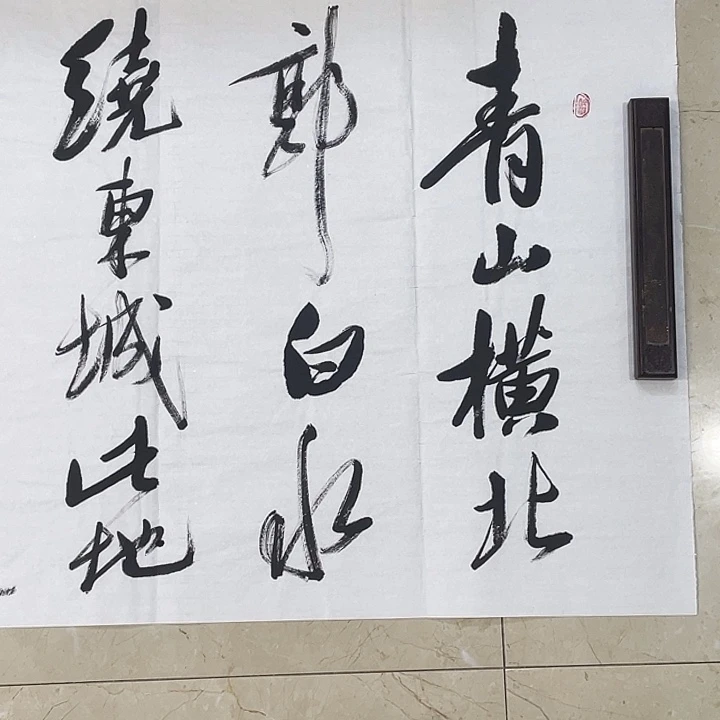 青山橫北
郭白水
繞東城此地